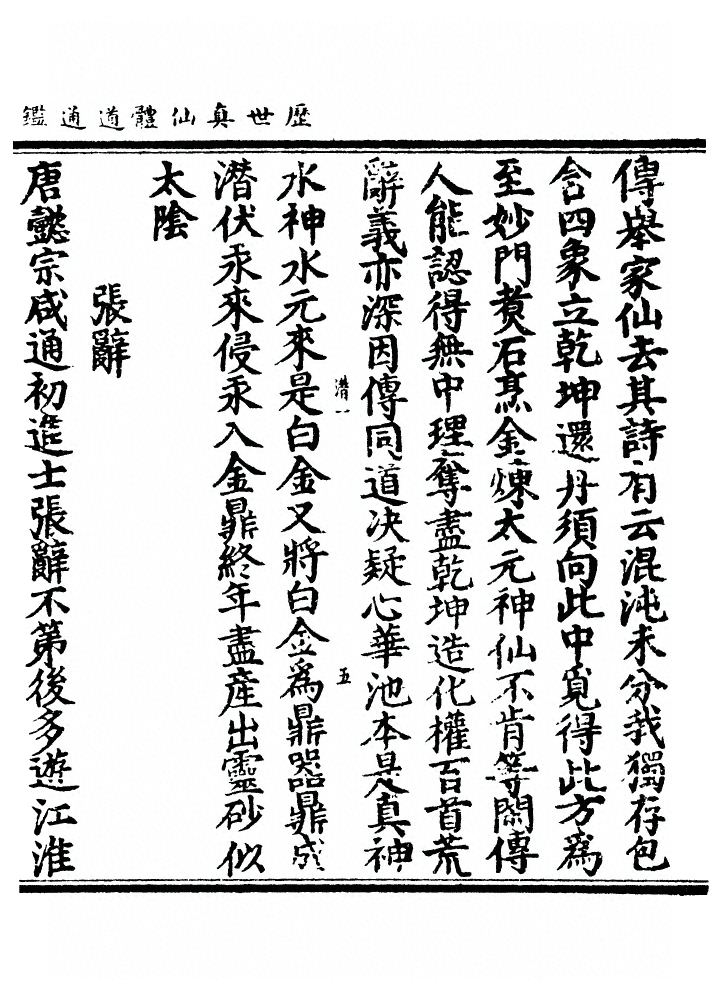 歷世真仙體道通鑑
傳舉家仙去其詩有云混沌未分我獨存包
含四象立乾坤還丹須向此中覓得此方爲
至妙門煑石烹金煉太元神仙不肯等閑傳
人能認得無中理奪盡乾坤造化權百首荒
辭義亦深因傳同道决疑心華池本是真神
潛一
五
水神水元來是白金又將白金爲鼎器鼎成
潛伏汞來侵汞入金鼎終年盡產出靈砂似
太陰
張辭
唐懿宗咸通初進士張辭不第後多遊江淮